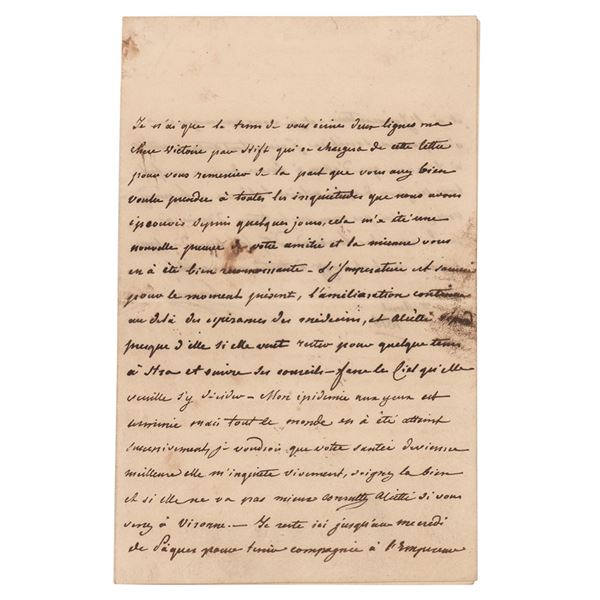 Je n'ai que le tems de vous écrire deux lignes ma
chere Victoire par Hift qui se chargera de cette lettre
pour vous remercier de la part que vous avez bien
voulu prendre à toutes les inquiétudes que nous avons
éprouvés depuis quelques jours, cela m'a été une
nouvelle preuve de votre amitié et la mienne vous
en à été bien reconnoissante - L'Imperatrice est sauvée
pour le moment présent, l'amélioration continue
au delà des espérances des médecins, et
presque d'elle si elle veut rester pour quelque tems
à et suivre ses conseils - fasse le Ciel qu'elle
veuille s'y décider - Mon épidémie aux yeux est
terminée mais tout le monde en à été atteint
successivement, je voudrois que votre santée devienne
meilleure elle m'inquiete vivement, soignez la bien
et si elle ne va pas mieux consultez si vous
venez à Vienne. - Je reste ici jusqu'au mecredi
de Pâques pour tenir compagnie à l'Empereur